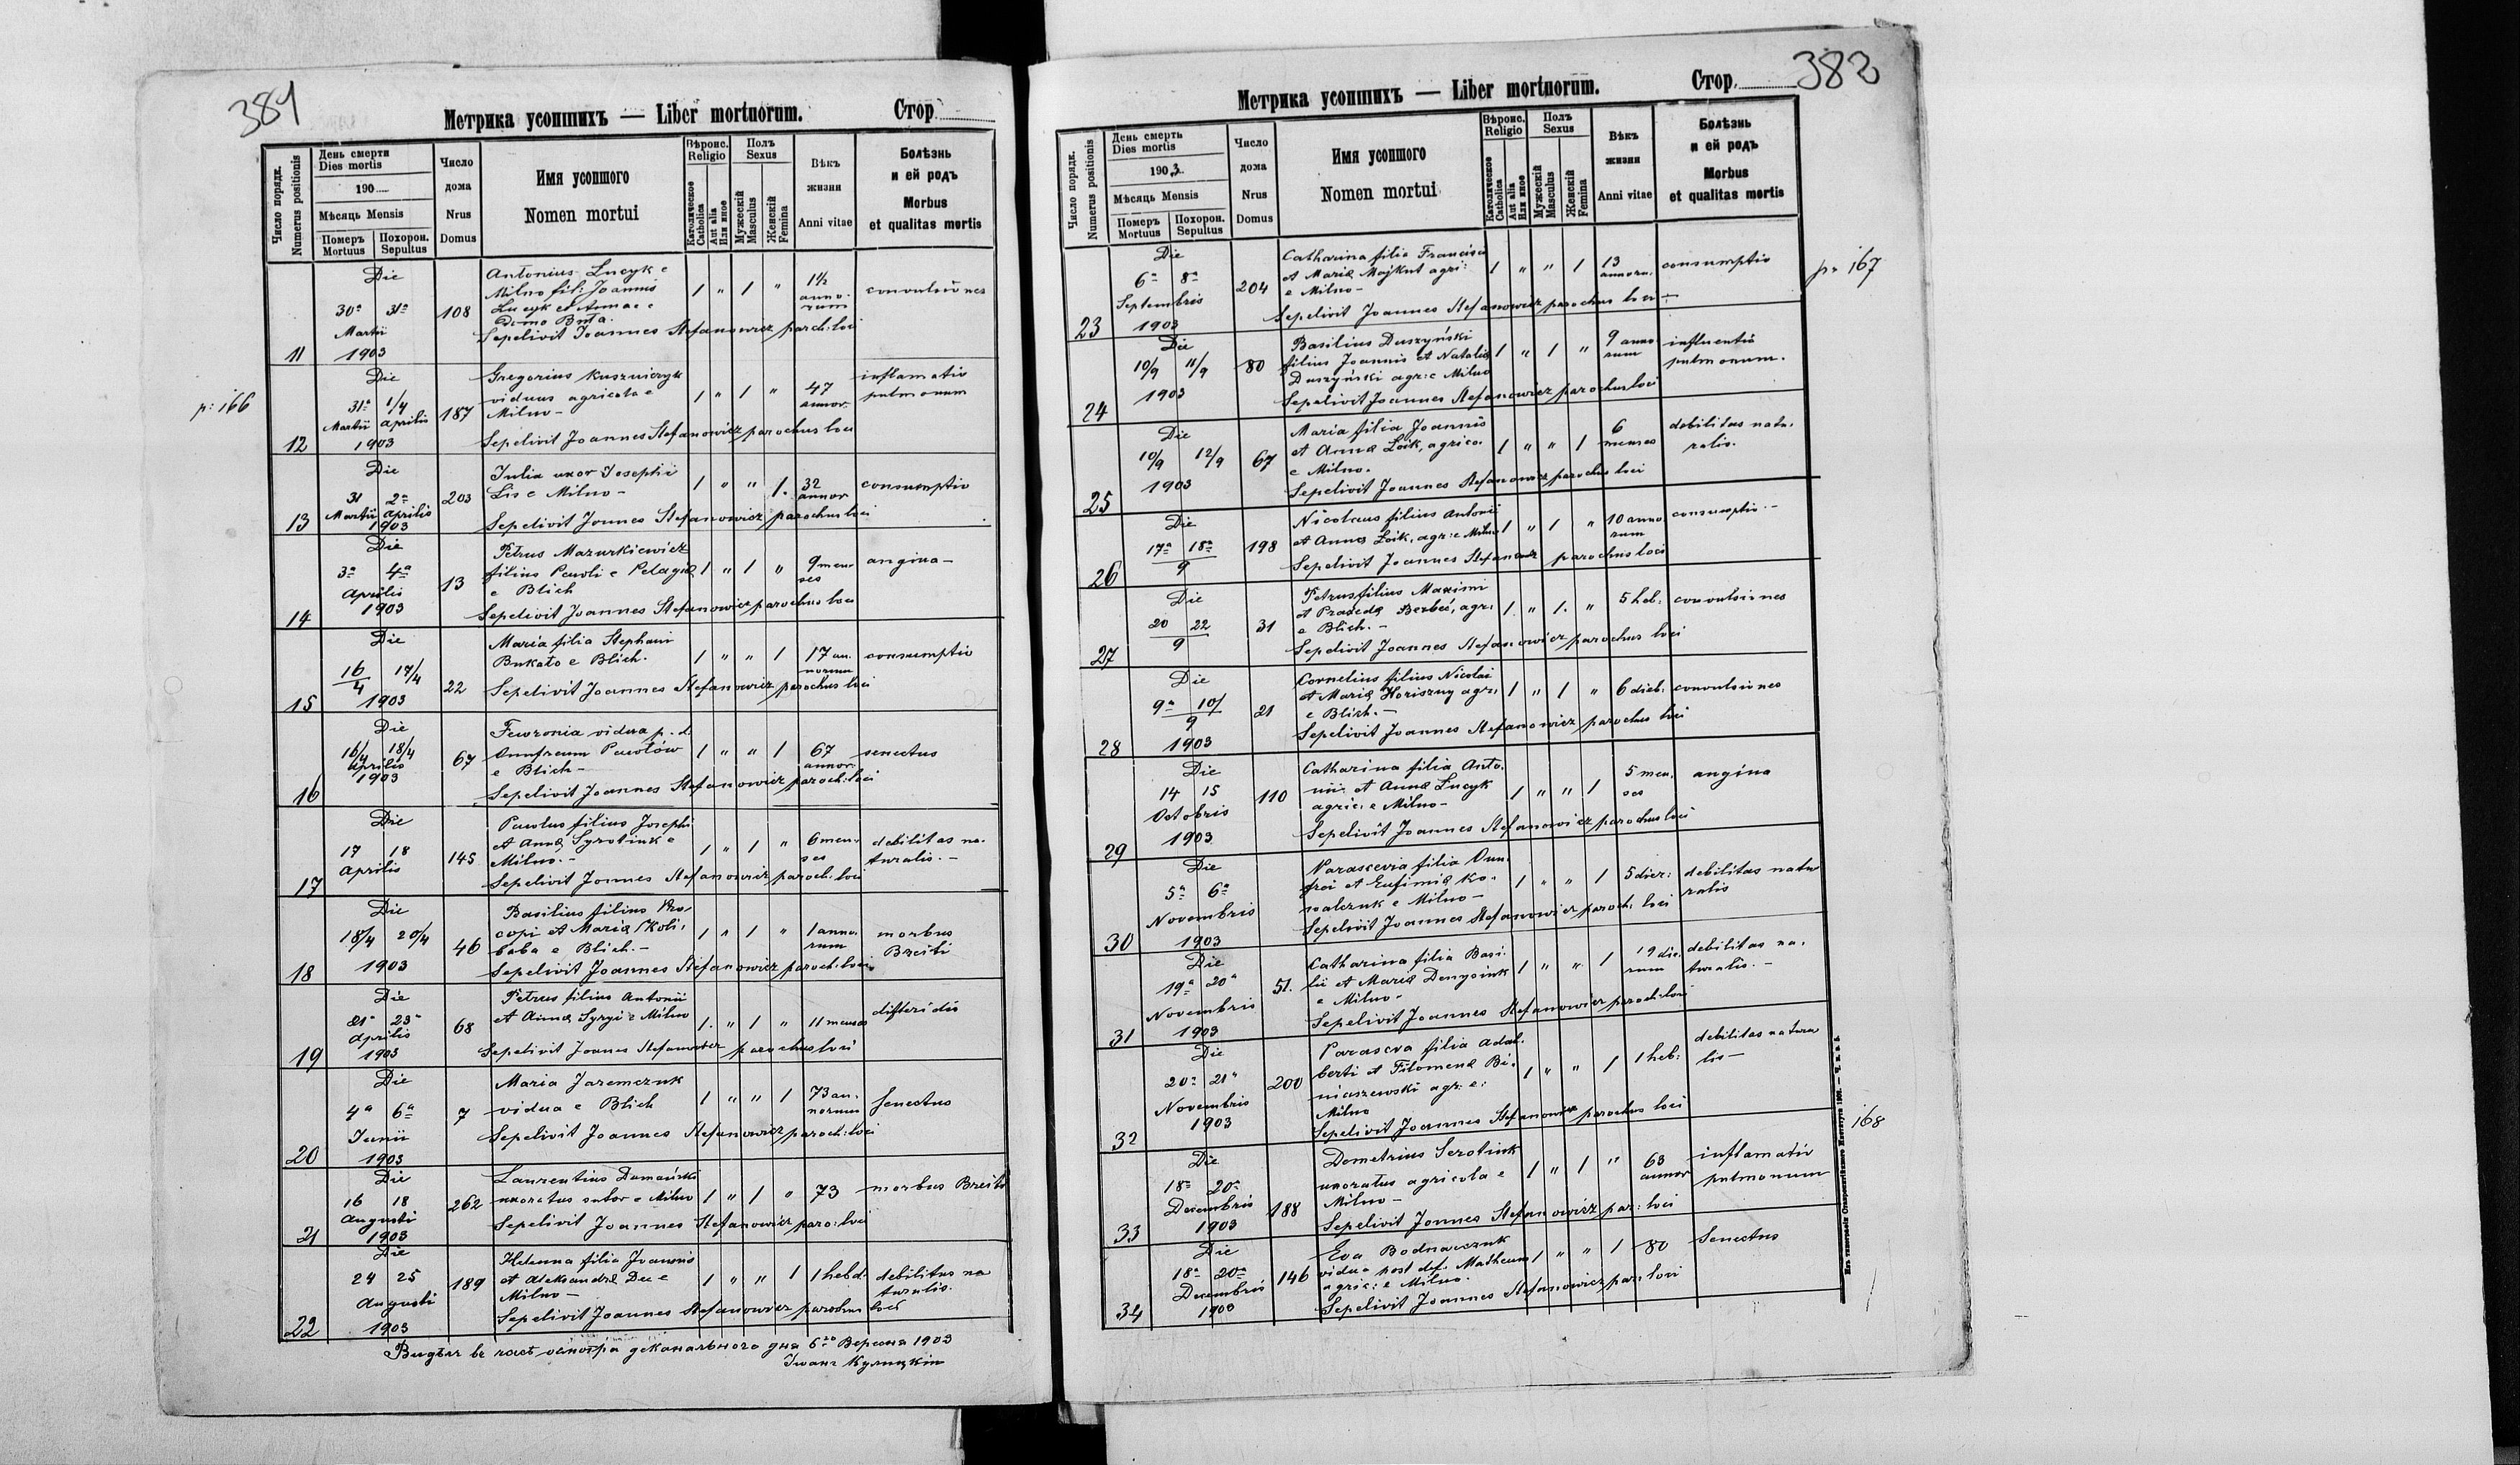 381
Метрика усопшихъ — Liber mortuorum. Стор.
Число порядк. Numerus positionis
День смерти Dies mortis
190
Мѣсяць Mensis
Померъ Mortuus
Похорон. Sepultus
Число дома Nrus Domus
Имя усопшого Nomen mortui
Вѣроис. Religio
Католическое Catholica
Aut alia Или иное
Полъ Sexus
Мужескій Masculus
Женскій Femina
Вѣкъ жизни Anni vitae
Болѣзнь и ей родъ Morbus et qualitas mortis
11 Die 30ª 31ª Martii 1903 108
Antonius Lucyk e
Milno fil: Joannis
Lucyk et Annae e
Domo
1 " 1 " 1½ anno-rum convulsiones
Sepelivit Joannes Stefanowicz paroch: loci
p: 166
12 Die 31ª Martii 1/4 Aprilis 1903 187
Gregorius Kuszniczyk
viduus agricola e
Milno -
1 " 1 " 47 annor. inflamatio pulmonum
Sepelivit Joannes Stefanowicz parochus loci
13 Die 31 Martii 2ª Aprilis 1903 203
Julia uxor Josephi
Lis e Milno -
1 " " 1. 32 annor consumptio
Sepelivit Jonnes Stefanowicz parochus loci
14 Die 3ª 4ª Aprilis 1903 13
Petrus Mazurkiewicz
filius Pauli e Pelagiæ
e Blich
1 " 1 " 9 men-ses angina -
Sepelivit Joannes Stefanowicz parochus loci
15 Die 16/4 17/4 1903 22
Maria filia Stephani
Bukato e Blich.
1 " " 1 17 an-norum consumptio
Sepelivit Joannes Stefanowicz parochus loci
16 Die 16/4 18/4 Aprilis 1903 67
Fewronia vidua p. d.
Onufreum Pawlów
e Blich -
1 " " 1 67 annor. senectus
Sepelivit Joannes Stefanowicz paroch: loci
17 Die 17 18 Aprilis 145
Paulus filius Josephi
et Annæ Syrotiuk e
Milno. -
1 " 1 " 6 men-ses debilitas na-turalis. -
Sepelivit Jonnes Stefanowicz paroch: loci
18 Die 18/4 20/4 1903 46
Basilius filius Pro-
copi et Mariæ Skoli-
baba e Blich. -
1 " 1 " 1 anno-rum morbus Breiti
Sepelivit Joannes Stefanowicz paroch: loci
19 Die 21ª 23ª Aprilis 1903 68
Petrus filius Antonii
et Annæ Syryi e Milno
1. " 1 " 11 menses difteridis
Sepelivit Joanes Stefanowicz parochus loci
20 Die 4ª 6ª Junii 1903 7
Maria Jaremczuk
vidua e Blich
1 " " 1 73 an-norum Senectus
Sepelivit Joannes Stefanowicz paroch: loci
21 Die 16 18 Augusti 1903 262
Laurentius Dumański
uxoratus sutor e Milno
1 " 1 " 73 morbus Breiti
Sepelivit Joannes Stefanowicz paro: loci
22 Die 24 25 Augusti 1903 189
Helenna filia Joannis
et Aleksandræ Dec e
Milno -
1 " " 1 1 hebd: debilitas na turalis.
Sepelivit Joannes Stefanowicz parochus loci
Видѣлъ въ часѣ осмотра деканального дня 6го Вересня 1903
Іванъ Кулицкій
382
Метрика усопшихъ — Liber mortuorum. Стор.
Число порядк. Numerus positionis
День смерть Dies mortis
1903
Мѣсяць Mensis
Померъ Mortuus
Похорон. Sepultus
Число дома Nrus Domus
Имя усопшого Nomen mortui
Вѣроис. Religio
Католическое Catholica
Aut alia Или иное
Полъ Sexus
Мужескій Masculus
Женскій Femina
Вѣкъ жизни Anni vitae
Болѣзнь и ей родъ Morbus et qualitas mortis
23 Die 6ª 8ª Septembris 1903 204
Catharina filia Francisci
et Mariæ Majkut agri:
e Milno -
1 " " 1 13 annoru. consumptio
Sepelivit Joannes Stefanowicz parochus loci -
p: 167
24 Die 10/9 11/9 1903 80
Basilius Duszyński
filius Joannis et Nataliæ
Duszyński agr: e Milno
1 " 1 " 9 anno rum influentio pulmonum.
Sepelivit Joannes Stefanowicz parochus loci
25 Die 10/9 12/9 1903 67
Maria filia Joannis
et Annæ Loik, agrico.
e Milno.
1 " " 1 6 menses debilitas natu-ralis.
Sepelivit Joannes Stefanowicz parochus loci
26 Die 17ª 18ª 9 198
Nicolaus filius Antonii
et Annæ Loik, agr: e Milno
1 " 1 " 10 anno rum consumptio. -
Sepelivit Joannes Stefanowicz parochus loci
27 Die 20 22 9 31
Petrus filius Maximi
et Praxedæ Berbeć, agr:
e Blich. -
1. " 1. " 5 heb: convulsiones
Sepelivit Joannes Stefanowicz parochus loci
28 Die 9ª 10/ 9 1903 21
Cornelius filius Nicolai
et Mariæ Horiszny agr:
e Blich. -
1 " 1 " 6 dieb: convulsiones
Sepelivit Joannes Stefanowicz parochus loci
29 Die 14 15 Octobris 1903 110
Catharina filia Anto-
nii et Annæ Lucyk
agric: e Milno -
1 " " 1 5 men-ses angina
Sepelivit Joannes Stefanowicz parochus loci
30 Die 5ª 6ª Novembris 1903
Parascevia filia Onu-
frei et Eufimiæ Ko-
walczuk e Milno -
1 " " 1 5 dier: debilitas natu ralis
Sepelivit Joannes Stefanowicz paroch: loci
31 Die 19ª 20ª Novembris 1903 51.
Catharina filia Basi-
lii et Mariæ Denysiuk
e Milno -
1 " " 1 19 die-rum debilitas na-turalis. -
Sepelivit Joannes Stefanowicz paroch: loci
32 Die 20ª 21ª Novembris 1903 200
Parasceva filia Adal-
berti et Filomenæ Bi-
niaszewski agr: e:
Milno
1 " " 1 1 heb: debilitas natura lis -
Sepelivit Joannes Stefanowicz parochus loci
168
33 Die 18ª 20ª Decembris 1903 188
Demetrius Serotiuk
uxoratus agricola e
Milno -
1 " 1 " 63 annor inflamatio pulmonum
Sepelivit Jonnes Stefanowicz par: loci
34 Die 18ª 20ª Decembris 1900 146
Eva Bodnarczuk
vidua post def. Matheum
agric: e Milno.
1 " " 1 80 Senectus
Sepelivit Joannes Stefanowicz par: loci